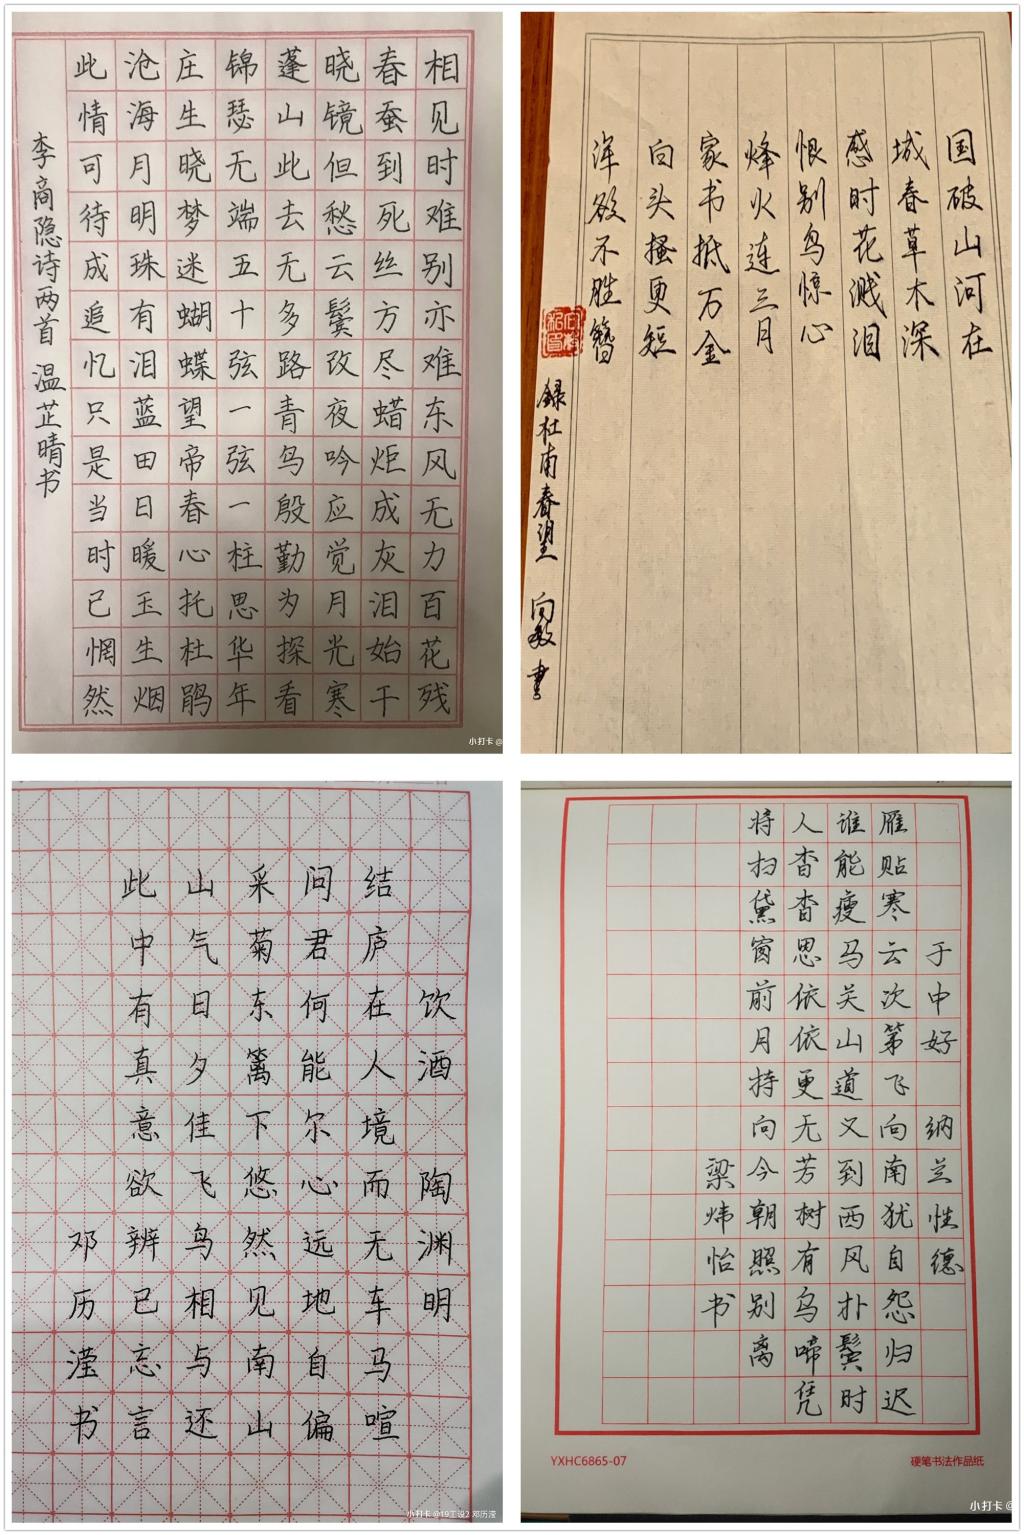 相见时难别亦难东风无力百花残
春蚕到死丝方尽蜡炬成灰泪始干
晓镜但愁云鬓改夜吟应觉月光寒
蓬山此去无多路青鸟殷勤为探看
锦瑟无端五十弦一弦一柱思华年
庄生晓梦迷蝴蝶望帝春心托杜鹃
沧海月明珠有泪蓝田日暖玉生烟
此情可待成追忆只是当时已惘然
李商隐诗两首 温芷晴书
小打卡 @
国破山河在
城春草木深
感时花溅泪
恨别鸟惊心
烽火连三月
家书抵万金
白头搔更短
浑欲不胜簪
録杜甫春望 向敏書
饮酒 陶渊明
结庐在人境而无车马喧
问君何能尔心远地自偏
采菊东篱下悠然见南山
山气日夕佳飞鸟相与还
此中有真意欲辨已忘言
邓历滢书
小打卡 @19工设2 邓历滢
于中好 纳兰性德
雁贴寒云次第飞向南犹自怨归迟
谁能瘦马关山道又到西风扑鬓时
人杳杳思依依更无芳树有乌啼凭
将扫黛窗前月持向今朝照别离
梁炜怡书
YXHC6865-07
硬笔书法作品纸
小打卡 @